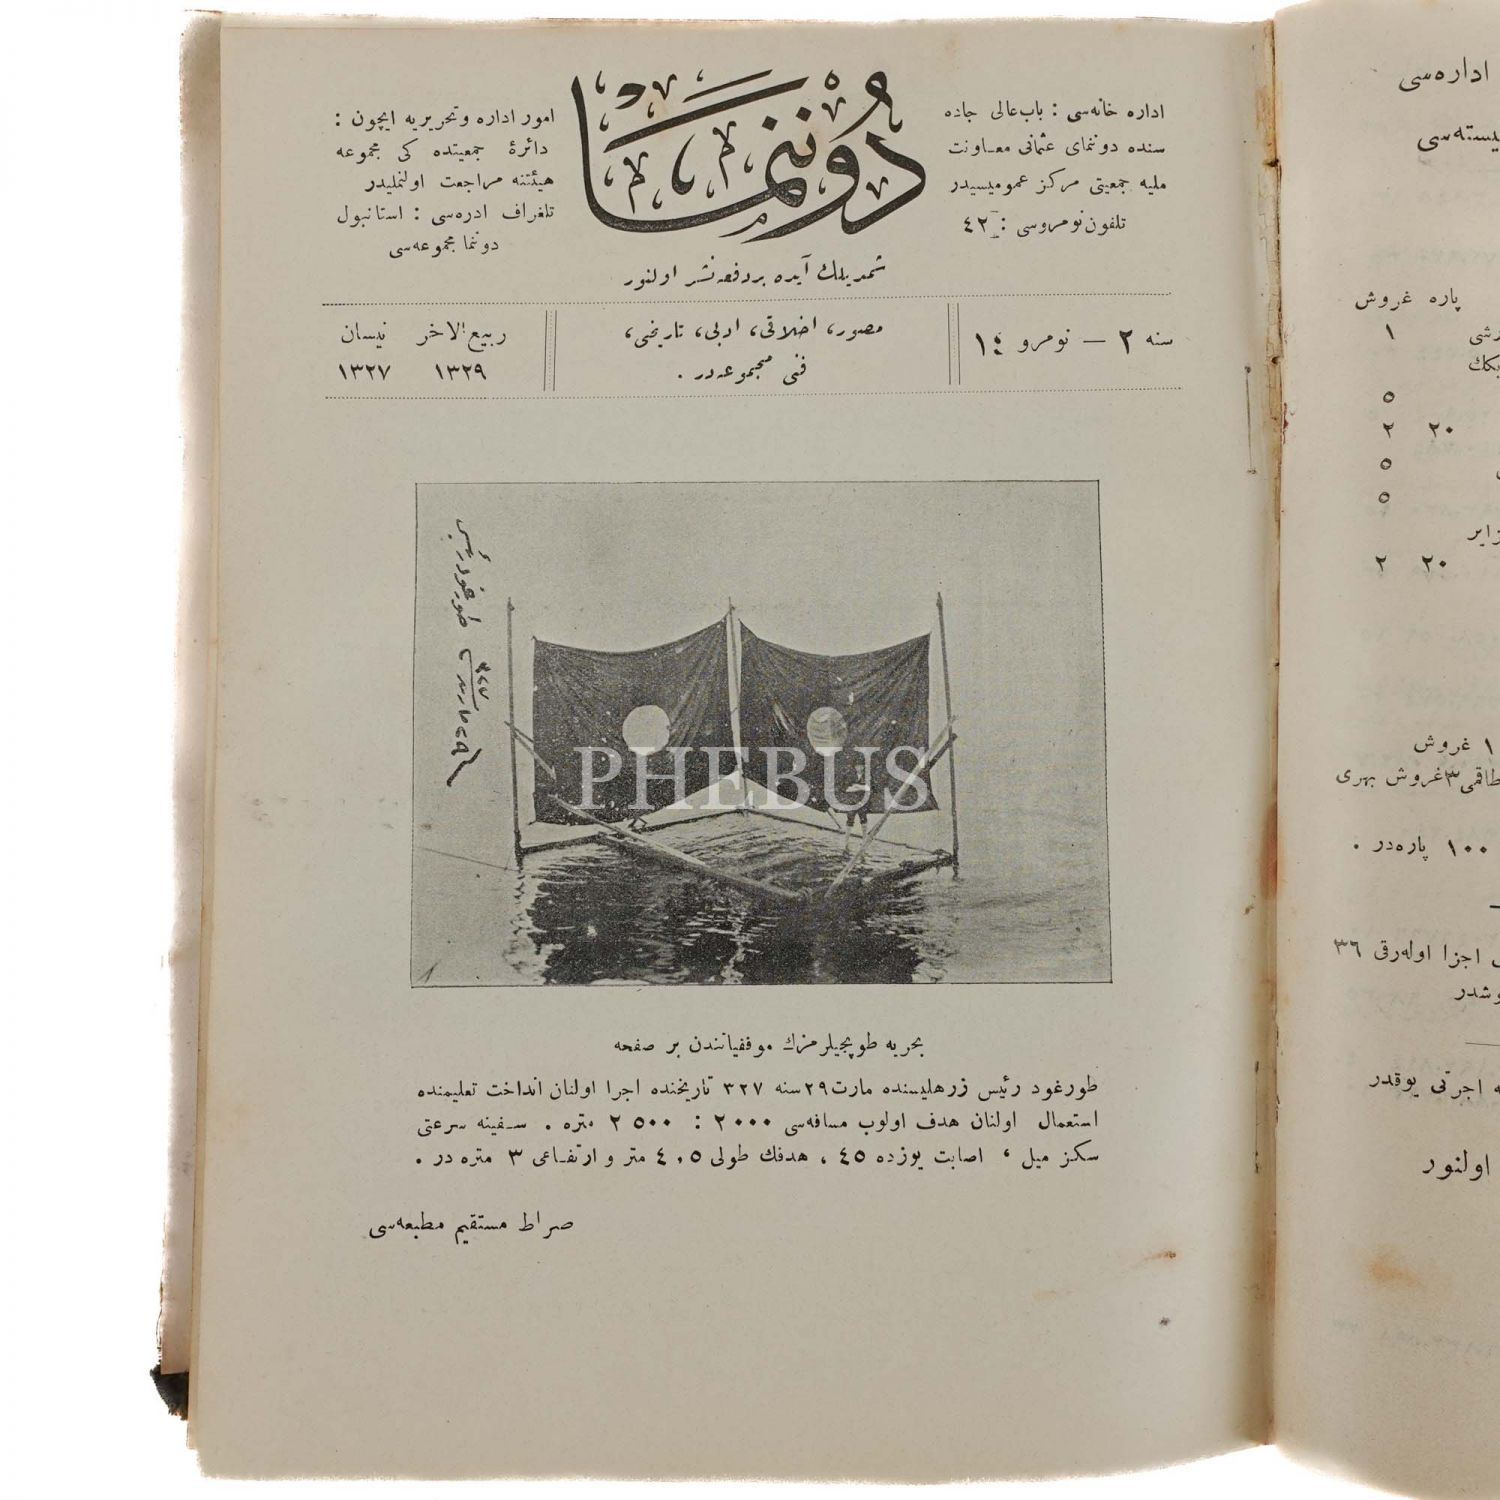 دوننما
اداره خانه‌سی : باب‌عالی جاده
سنده دوننمای عثمانی معاونت
ملیه جمعیتی مرکز عمومیسیدر
تلفون نومروسی : ٤٢
امور اداره و تحریریه ایچون :
دائرهٔ جمعیتده کی مجموعه
هیئتنه مراجعت اولنملیدر
تلغراف ادره‌سی : استانبول
دوننما مجموعه‌سی
شمدیلك آیده بر دفعه نشر اولنور
سنه ٢ — نومرو ١٤
مصور، اخلاقی، ادبی، تاریخی،
فنی مجموعه‌در .
ربیع‌الاخر نیسان
١٣٢٩ ١٣٢٧
طورغود رئیس
PHEBUS
بحریه طوپجیلرمزك موفقیاتندن بر صفحه
طورغود رئیس زرهلیسنده مارت ٢٩ سنه ٣٢٧ تاریخنده اجرا اولنان انداخت تعلیمنده
استعمال اولنان هدف اولوب مسافه‌سی ٢٠٠٠ : ٢٥٠٠ متره . سفینه سرعتی
سکز میل ، اصابت یوزده ٤٥ ، هدفك طولی ٤,٥ متر و ارتفاعی ٣ متره در .
صراط مستقیم مطبعه‌سی
اداره‌سی
پاره غروش
١
٥
٢٠ ٢
٥
٥
٢٠ ٢
١ غروش
طاقمی ٣ غروش بهری
١٠٠ پاره‌در .
اجزا اوله‌رق ٣٦
اجرتی یوقدر
اولنور